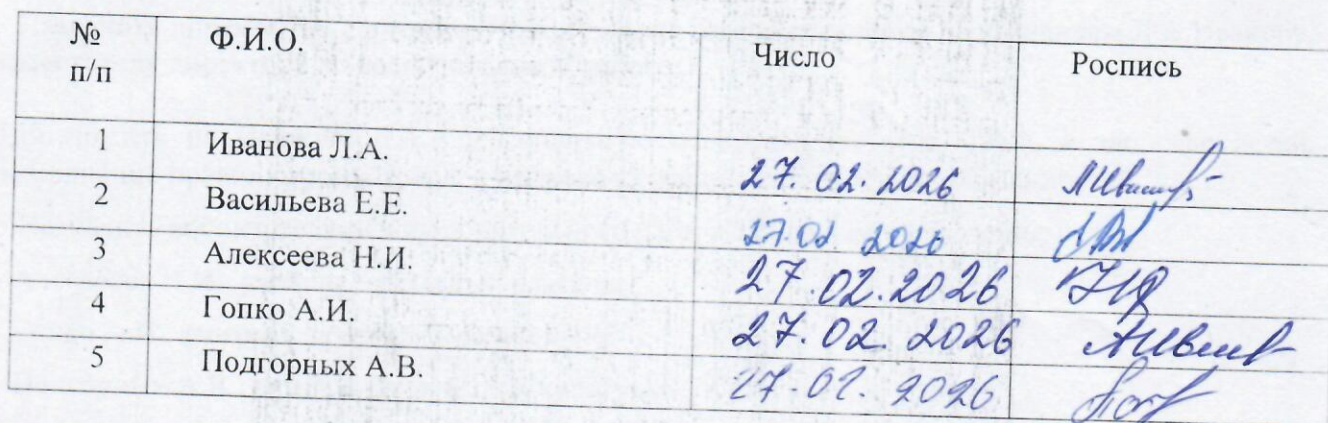 № п/п Ф.И.О. Число Роспись
1 Иванова Л.А. 27.02.2026
2 Васильева Е.Е. 27.02 2026
3 Алексеева Н.И. 27.02.2026
4 Гопко А.И. 27.02.2026
5 Подгорных А.В. 27.02.2026